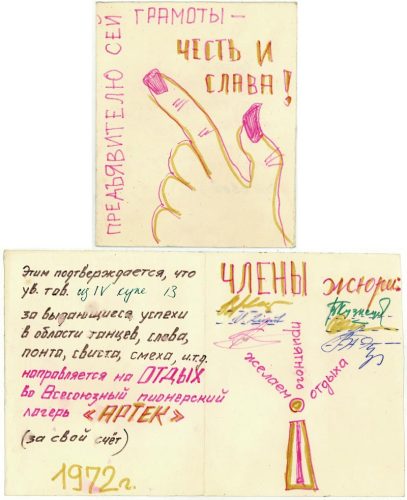 ПРЕДЪЯВИТЕЛЮ СЕЙ
ГРАМОТЫ –
ЧЕСТЬ И
СЛАВА!
Этим подтверждается, что
ув. тов. из IV купе 13
за выдающиеся успехи
в области танцев, слова,
понта, свиста, смеха, и.т.д.
направляется на ОТДЫХ
во Всесоюзный пионерский
лагерь «АРТЕК»
(за свой счёт)
1972г.
ЧЛЕНЫ жюри:
желаем
приятного
отдыха